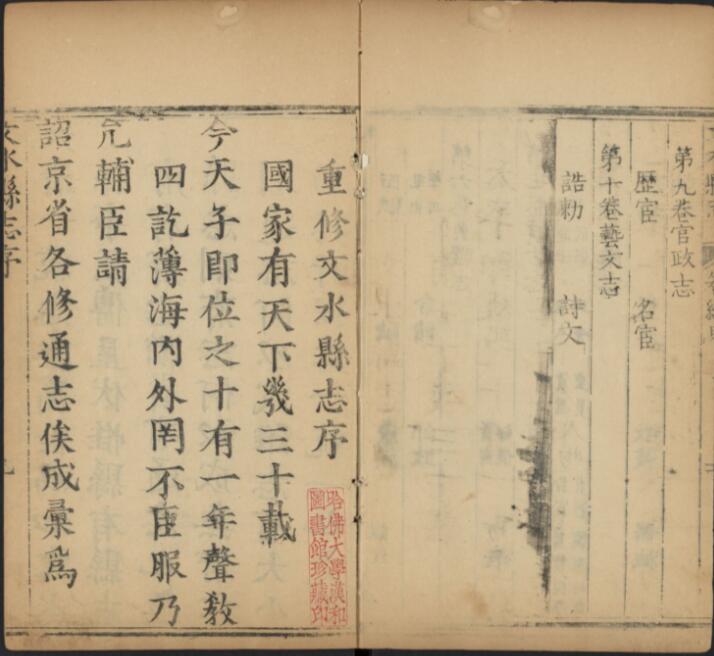 第九卷官政志
歷宦 名宦
第十卷藝文志
誥勑 詩文
重修文水縣志序
國家有天下幾三十載
今天子即位之十有一年聲敎
四訖薄海內外罔不臣服乃
允輔臣請
詔京省各修通志俟成彙爲
文水縣志序
哈佛大學漢和
圖書館珍藏印